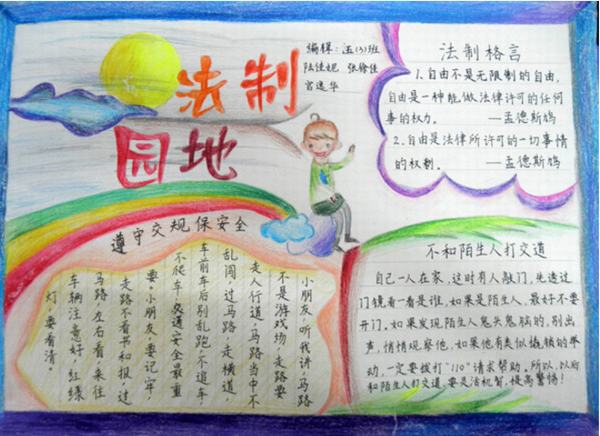 法制
园地
编辑:五(3)班
陆佳妮 张徐佳
官逸华
法制格言
1.自由不是无限制的自由,
自由是一种能做法律许可的任何
事的权力。 —孟德斯鸠
2.自由是法律所许可的一切事情
的权利。 —孟德斯鸠
遵守交规保安全
小朋友,听我讲,马路
不是游戏场,走路要
走人行道,马路当中不
乱闯,过马路,走横道
车前车后别乱跑,不追车
不爬车,交通安全最重
要,小朋友,要记牢,
走路不看书和报,过
马路左右看,来往
车辆注意好,红绿
灯,要看清。
不和陌生人打交道
自己一人在家,这时有人敲门,先透过
门镜看一看是谁,如果是陌生人,最好不要
开门。如果发现陌生人鬼头鬼脑的,别出
声,悄悄观察他,如果他有类似撬锁的举
动,一定要拨打"110"请求帮助。所以,以后
和陌生人打交道,要灵活机智,提高警惕!